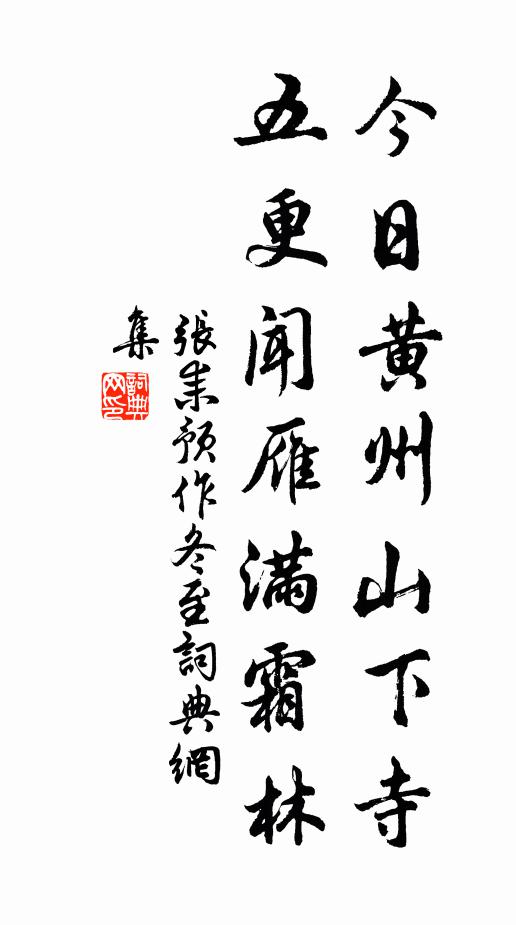 今日黄州山下寺
五更闻雁满霜林
張耒預作冬至詞典網
集
詞典
网印